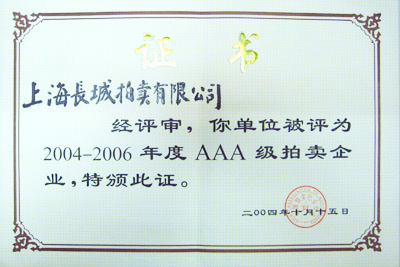 证书
上海長城拍卖有限公司
经评审，你单位被评为
2004-2006 年度 AAA 级拍卖企
业，特颁此证。
二00四年十月十五日